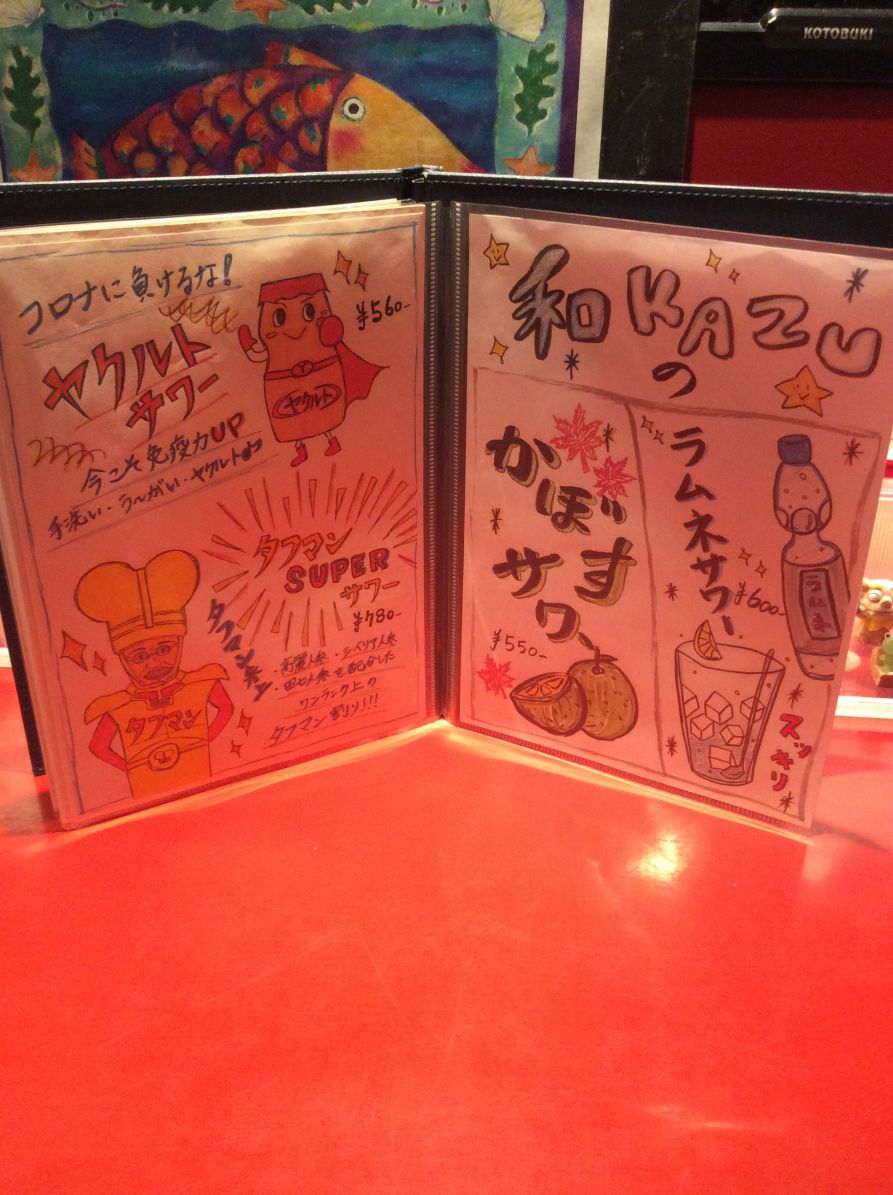 KOTOBUKI
コロナに負けるな!
ヤクルト
サワー
¥560-
ヤクルト
今こそ免疫力UP
手洗い・う〜がい・ヤクルト
タフマン
SUPER
サワー
¥780-
タフマン参上
・高麗人参・シベリア人参
・田七人参を配合した
ワンランク上の
タフマン割り!!!
タフマン
和KAZU
の
かぼす
サワー
¥550-
ラムネサワー
¥600-
ラムネ
スッキリ